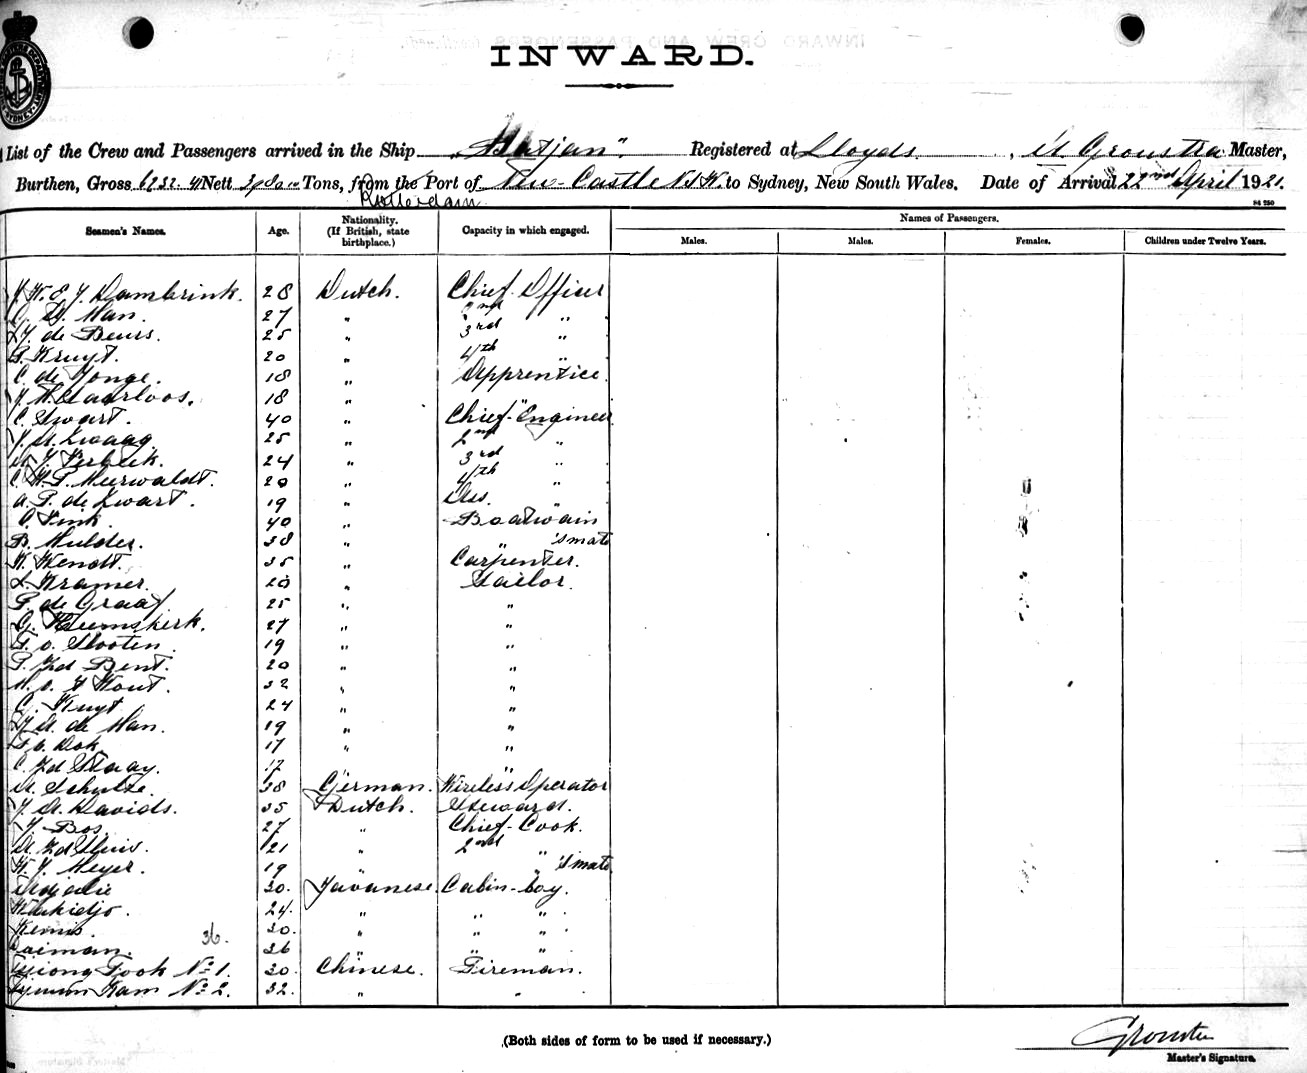 INWARD.
List of the Crew and Passengers arrived in the Ship "Batjan". Registered at Lloyds, Groustra Master,
Burthen, Gross Nett Tons, from the Port of New-Castle N.S.W. to Sydney, New South Wales. Date of Arrival 22nd April 1921.
Rotterdam
Names of Passengers.
Seamen's Names. Age. Nationality. (If British, state birthplace.) Capacity in which engaged. Males. Males. Females. Children under Twelve Years.
J. W. E. J. Dambrink. 28 Dutch. Chief Officer
Man. 27 " 2nd "
de Beurs. 25 " 3rd "
Kruyt. 20 " 4th "
C. de Jonge. 18 " Apprentice
18 " "
C. Swart. 40 " Chief-Engineer
25 " 2nd "
24 " 3rd "
C. H. P. Meerwaldt. 20 " 4th "
A. P. de Zwart. 19 " Ass. "
40 " Boatswain
B. Mulder. 38 " " 's mate
Wendt. 35 " Carpenter.
Kramer. 20 " Sailor.
P. de Graaf 25 " "
G. Heemskerk. 27 " "
v. Slooten. 19 " "
P. v/d Bent. 20 " "
Hout. 32 " "
24 " "
de Man. 19 " "
v. Dok. 17 " "
C. v/d Staay. 17 "
Schultze. 38 German. Wireless Operator
Davids. 35 Dutch. Steward.
J. Bos. 27 " Chief-Cook.
v/d Sluis. 21 " 2nd "
Meyer. 19 " " 's mate
30. Javanese. Cabin-boy.
24. " " "
Kemis. 30. " " "
Paiman. 36. 26 " " "
Tjiong Fook No. 1. 30. Chinese. Fireman.
Kam No. 2. 32. " "
(Both sides of form to be used if necessary.)
Groustra
Master's Signature.